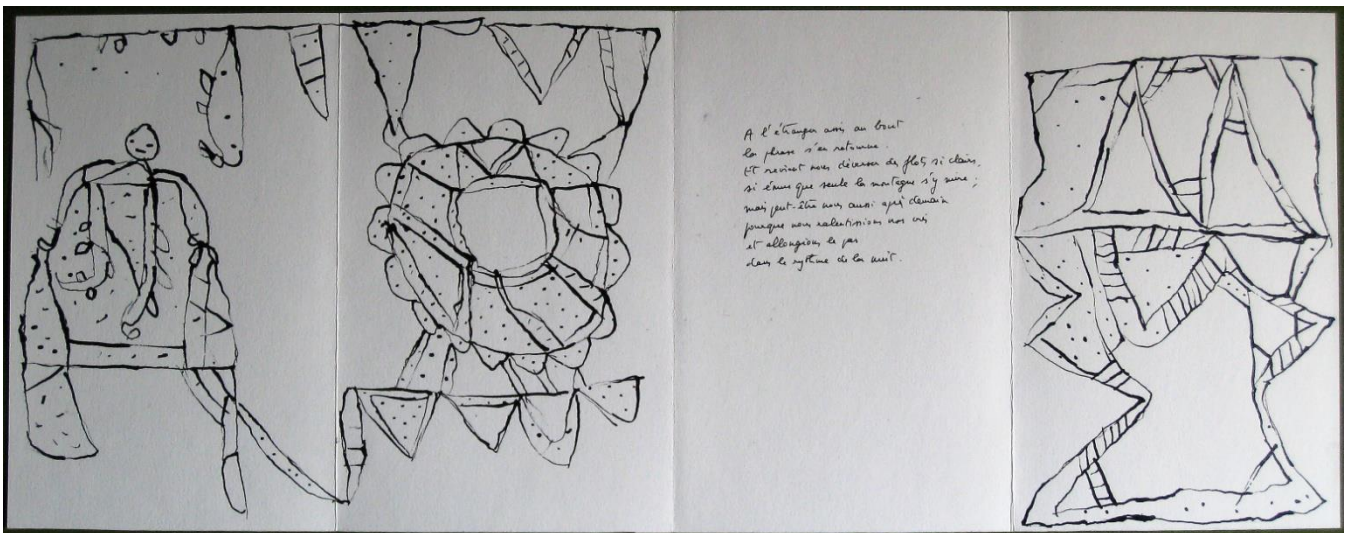 A l'étranger assis au bout
la phrase s'en retourne.
Et revient nous déverser des flots si clairs,
si émue que seule la montagne s'y mire ;
mais peut-être nous aussi après demain
pourvu que nous ralentissions nos
et allongions le pas
dans le rythme de la nuit.